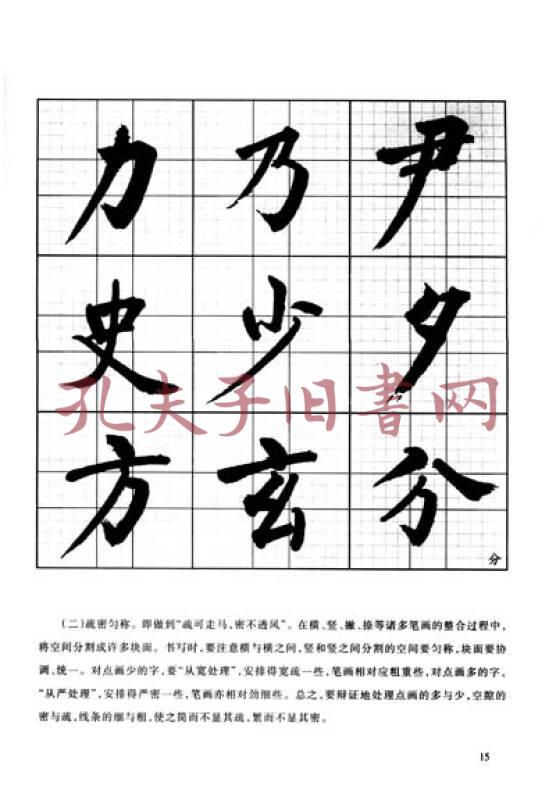 力 乃 尹
史 少 夕
方 玄 分
分
孔夫子旧書网
(二)疏密匀称。即做到“疏可走马,密不透风”。在横、竖、撇、捺等诸多笔画的整合过程中,
将空间分割成许多块面。书写时,要注意横与横之间,竖和竖之间分割的空间要匀称,块面要协
调、统一。对点画少的字,要“从宽处理”,安排得宽疏一些,笔画相对应粗重些,对点画多的字,
“从严处理”,安排得严密一些,笔画亦相对劲细些。总之,要辩证地处理点画的多与少,空隙的
密与疏,线条的细与粗,使之简而不显其疏,繁而不显其密。
15